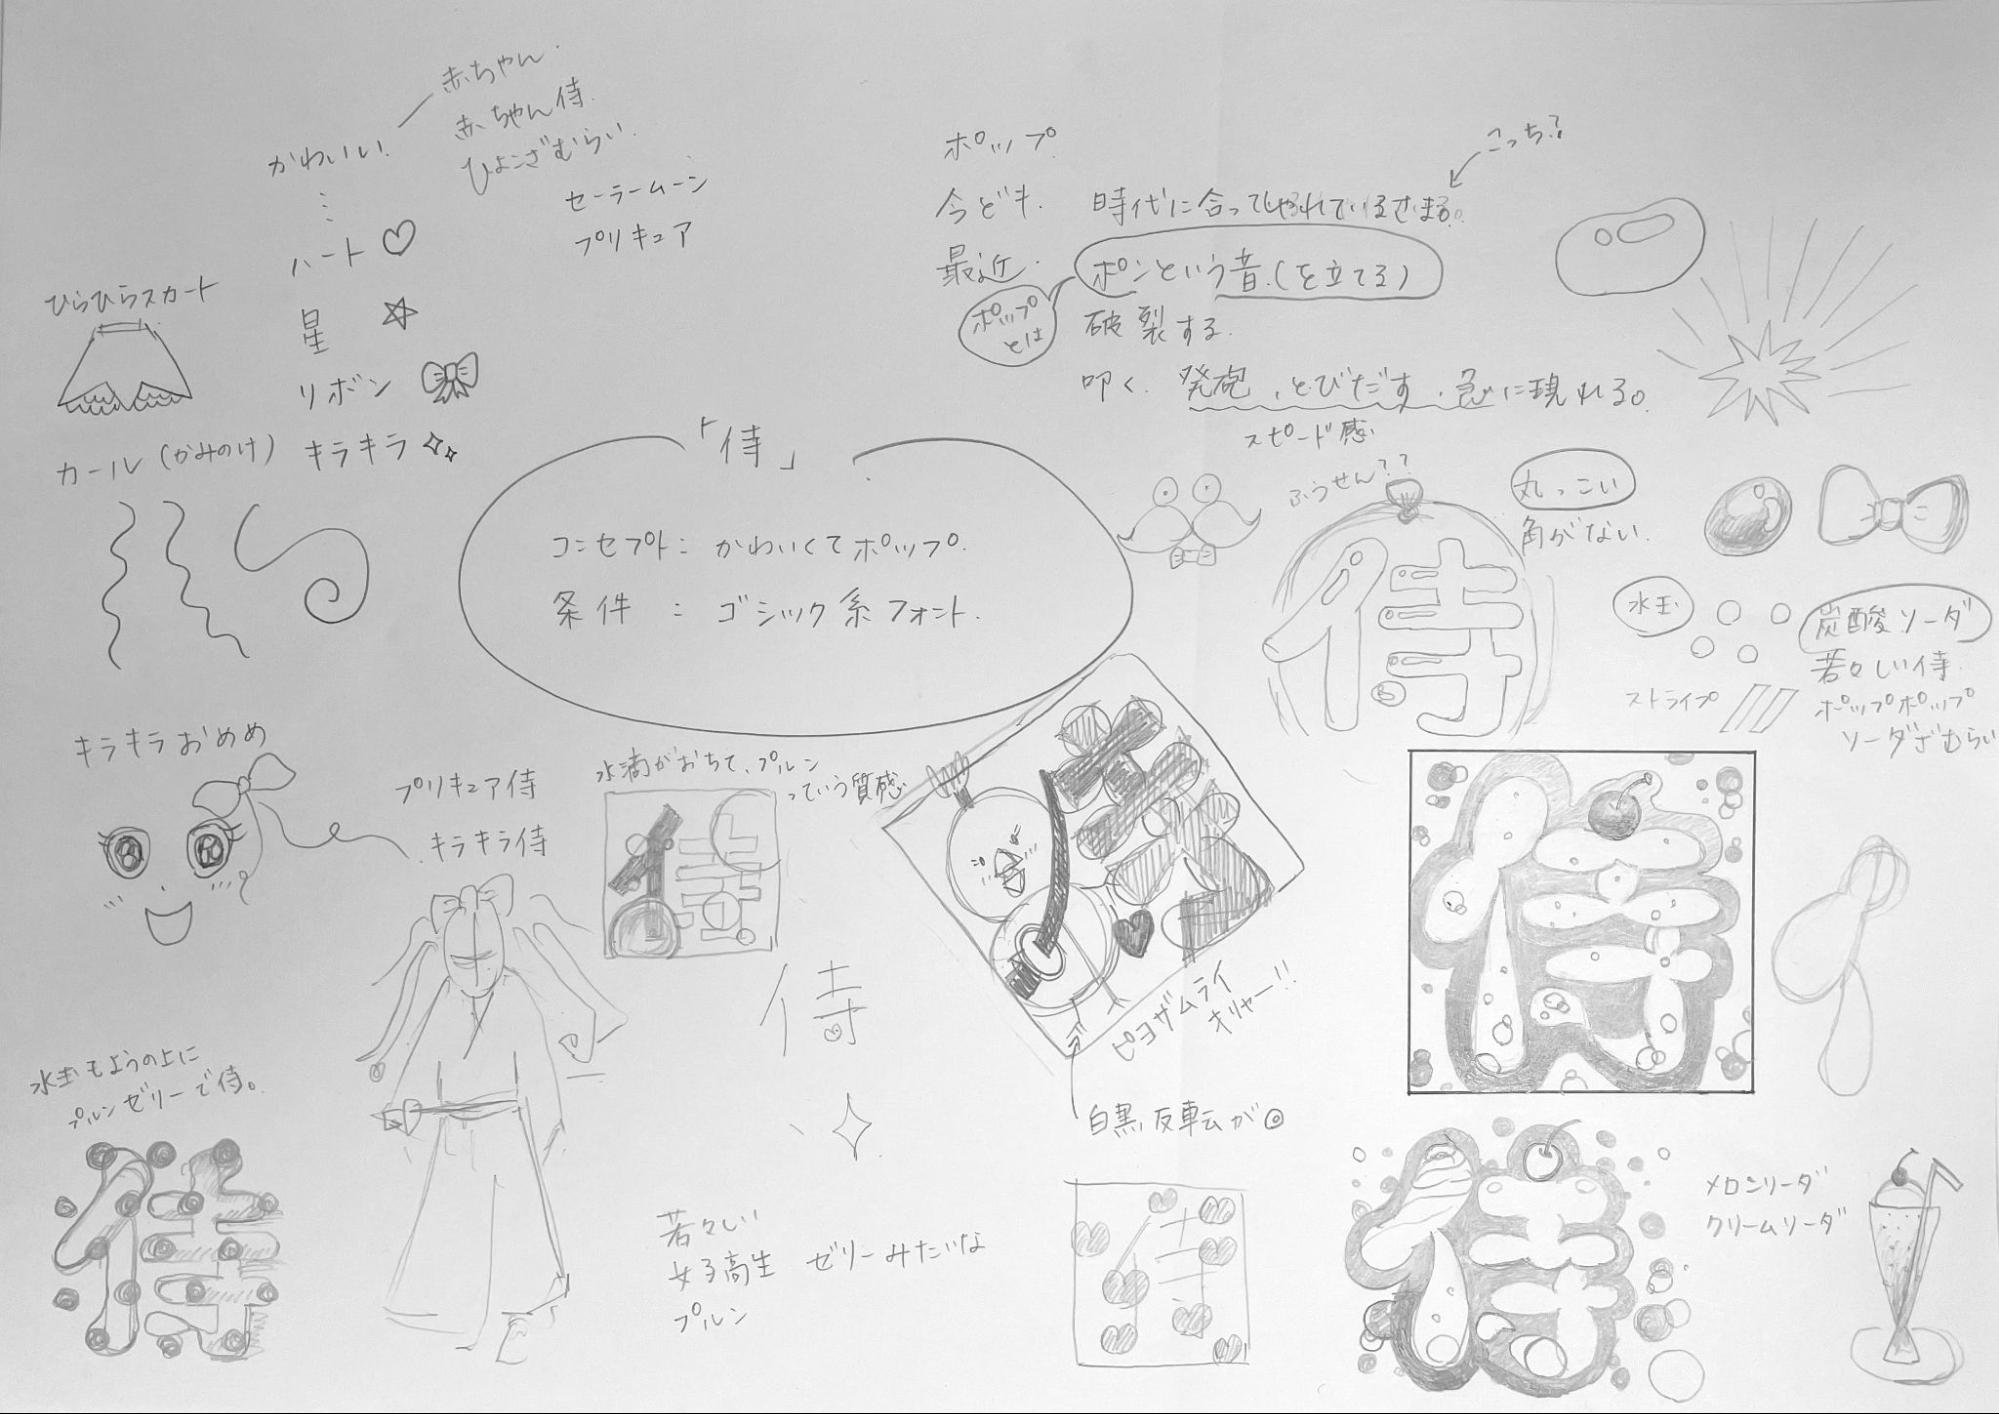 赤ちゃん
赤ちゃん侍
ひよこざむらい
かわいい
セーラームーン
プリキュア
ハート
星
リボン
キラキラ
ひらひらスカート
カール(かみのけ)
ポップ
今どき
最近
時代に合ってしゃれているさまる。
こっち?
ポップとは
ポンという音(を立てる)
破裂する
叩く、発砲、とびだす、急に現れる。
スピード感
「侍」
コンセプト:かわいくてポップ
条件:ゴシック系フォント
ふうせん??
丸っこい
角がない
水玉
ストライプ
炭酸ソーダ
若々しい侍
ポップポップ
ソーダざむらい
侍
キラキラおめめ
プリキュア侍
キラキラ侍
水滴がおちて、プルン
っていう質感
侍
侍
侍
侍
ピヨザムライ
オリャー!!
白黒反転が◎
水玉もようの上に
プルンゼリーで侍。
侍
若々しい
女子高生
プルン
ゼリーみたいな
侍
侍
メロンソーダ
クリームソーダ